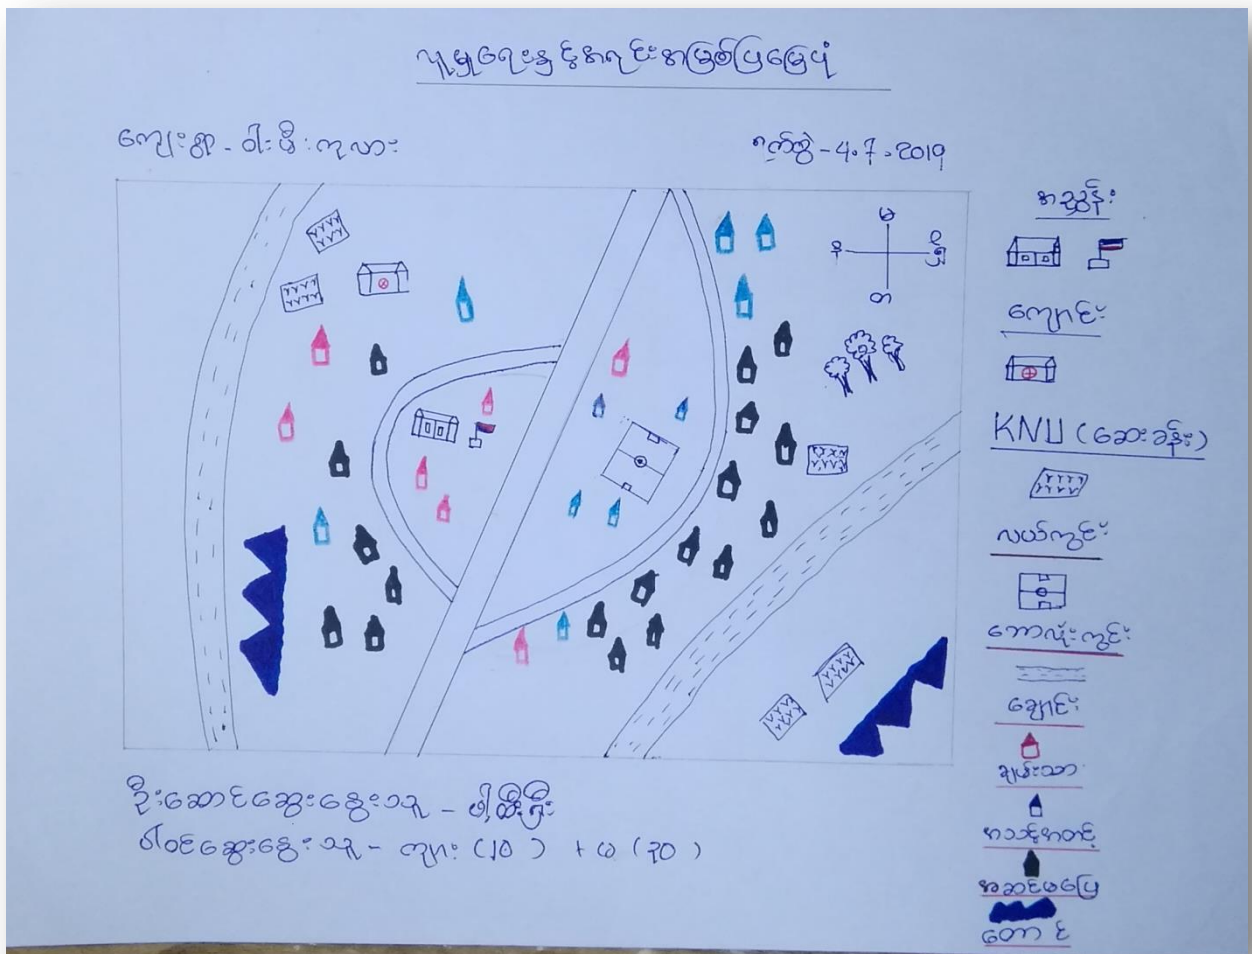 လူမှုရေးနှင့်အရင်းအမြစ်ပြမြေပုံ
ကျေးရွာ - ဝါးဖီးကုလား
ရက်စွဲ - 4.7.2019
မ
န
တ
အညွှန်း
ကျောင်း
KNU (ဆေးခန်း)
လယ်ကွင်း
ဘောလုံးကွင်း
ချောင်း
ချမ်းသာ
အသင့်အတင့်
အဆင်မပြေ
တောင်
ဦးဆောင်ဆွေးနွေးသူ -
ပါဝင်ဆွေးနွေးသူ - ကျား (၂၀) + မ (၃၀)